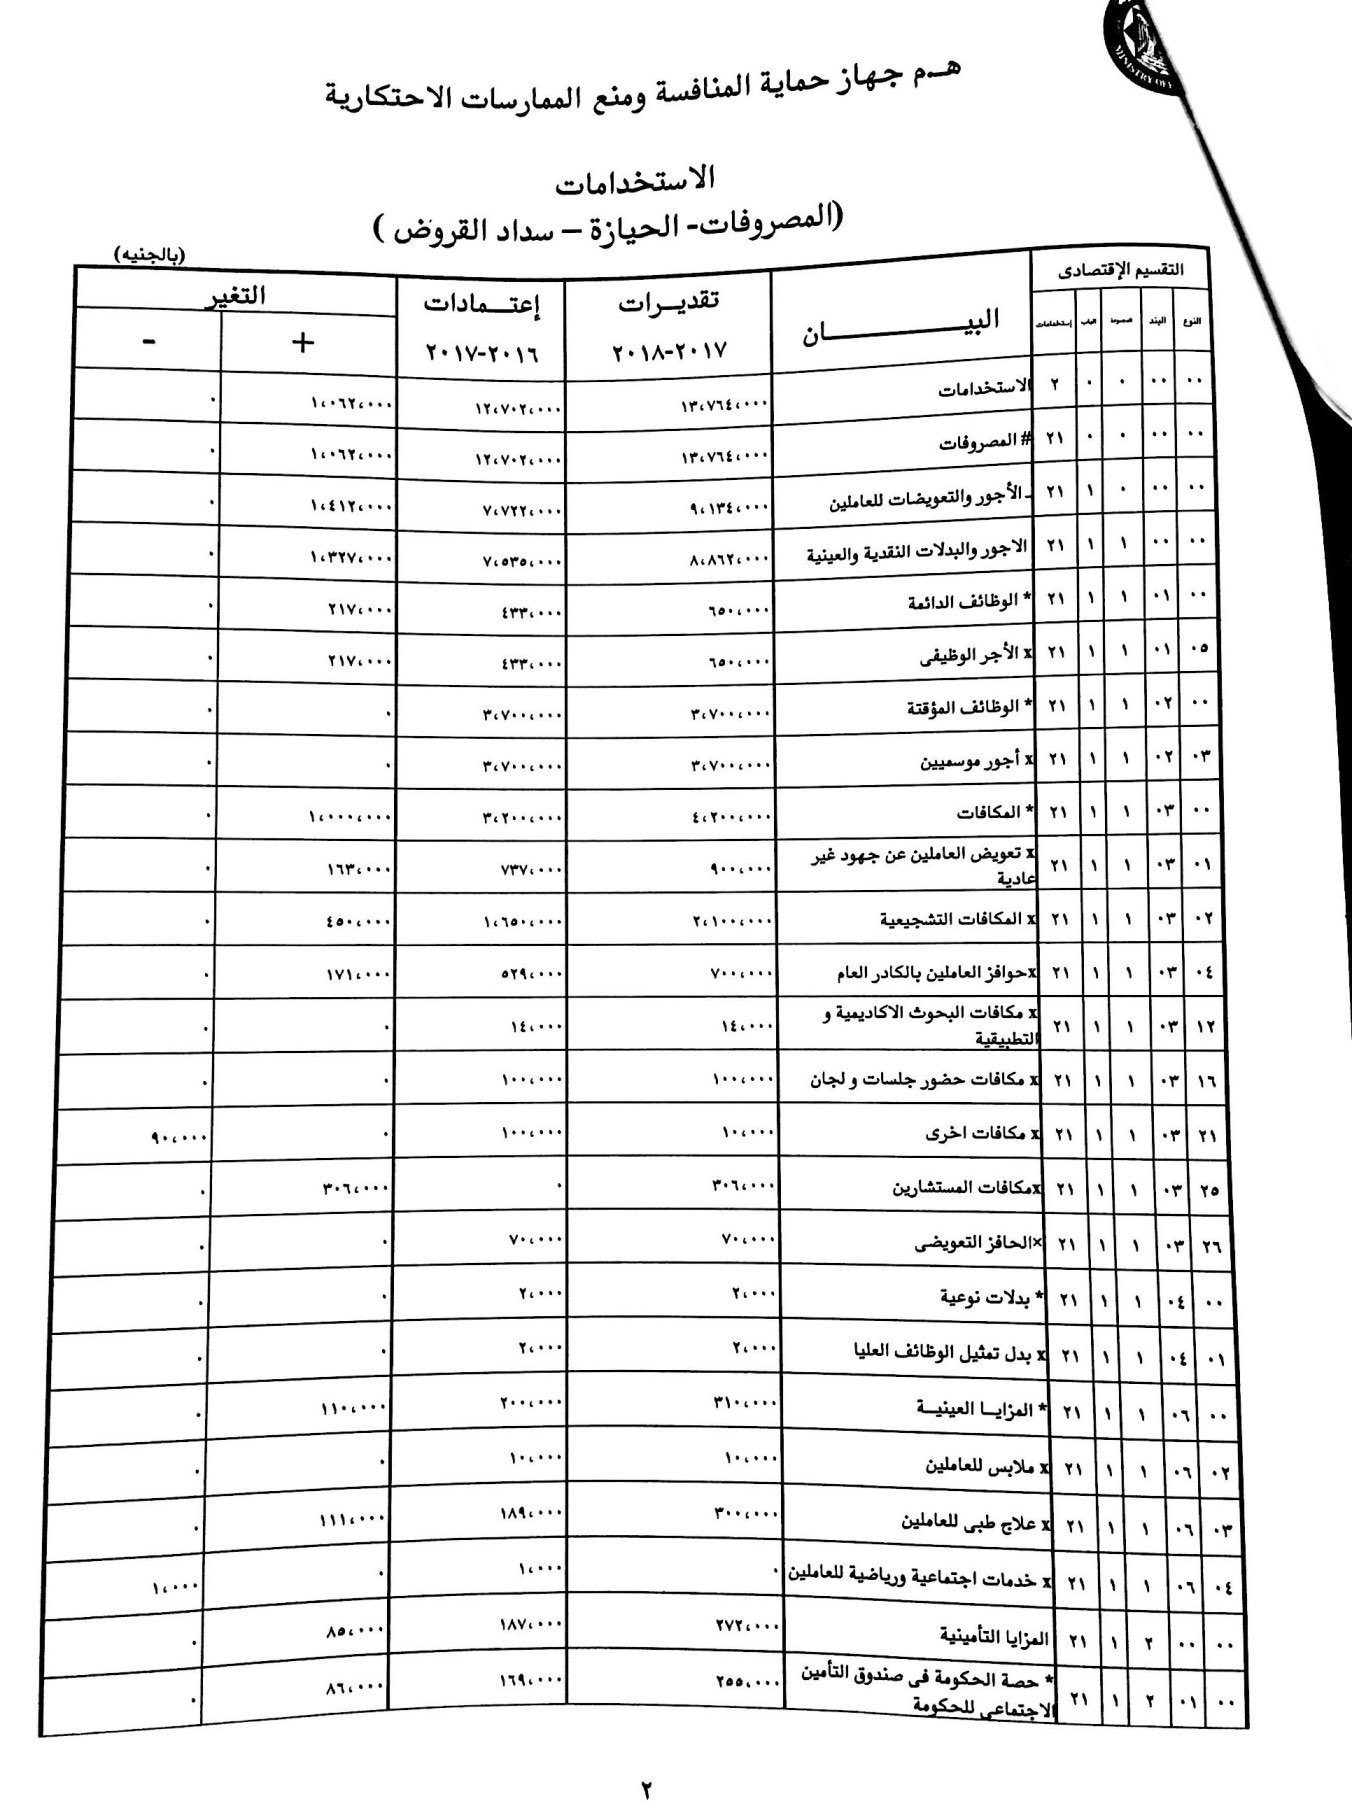 MINISTRY OF
هـم جهاز حماية المنافسة ومنع الممارسات الاحتكارية
الاستخدامات
(المصروفات- الحيازة – سداد القروض )
(بالجنيه)
التقسيم الإقتصادى البيـــــــــان تقديـرات ٢٠١٧-٢٠١٨ إعتـمادات ٢٠١٦-٢٠١٧ التغير
النوع البند المجموعة الباب إستخدامات + -
٠٠ ٠٠ ٠ ٠ ٢ الاستخدامات ١٣،٧٦٤،٠٠٠ ١٢،٧٠٢،٠٠٠ ١،٠٦٢،٠٠٠ ٠
٠٠ ٠٠ ٠ ٠ ٢١ # المصروفات ١٣،٧٦٤،٠٠٠ ١٢،٧٠٢،٠٠٠ ١،٠٦٢،٠٠٠ ٠
٠٠ ٠٠ ٠ ١ ٢١ ـ الأجور والتعويضات للعاملين ٩،١٣٤،٠٠٠ ٧،٧٢٢،٠٠٠ ١،٤١٢،٠٠٠ ٠
٠٠ ٠٠ ١ ١ ٢١ الاجور والبدلات النقدية والعينية ٨،٨٦٢،٠٠٠ ٧،٥٣٥،٠٠٠ ١،٣٢٧،٠٠٠ ٠
٠٠ ٠١ ١ ١ ٢١ * الوظائف الدائمة ٦٥٠،٠٠٠ ٤٣٣،٠٠٠ ٢١٧،٠٠٠ ٠
٠٥ ٠١ ١ ١ ٢١ x الأجر الوظيفى ٦٥٠،٠٠٠ ٤٣٣،٠٠٠ ٢١٧،٠٠٠ ٠
٠٠ ٠٢ ١ ١ ٢١ * الوظائف المؤقتة ٣،٧٠٠،٠٠٠ ٣،٧٠٠،٠٠٠ ٠ ٠
٠٣ ٠٢ ١ ١ ٢١ x أجور موسميين ٣،٧٠٠،٠٠٠ ٣،٧٠٠،٠٠٠ ٠ ٠
٠٠ ٠٣ ١ ١ ٢١ * المكافات ٤،٢٠٠،٠٠٠ ٣،٢٠٠،٠٠٠ ١،٠٠٠،٠٠٠ ٠
٠١ ٠٣ ١ ١ ٢١ x تعويض العاملين عن جهود غير عادية ٩٠٠،٠٠٠ ٧٣٧،٠٠٠ ١٦٣،٠٠٠ ٠
٠٢ ٠٣ ١ ١ ٢١ x المكافات التشجيعية ٢،١٠٠،٠٠٠ ١،٦٥٠،٠٠٠ ٤٥٠،٠٠٠ ٠
٠٤ ٠٣ ١ ١ ٢١ xحوافز العاملين بالكادر العام ٧٠٠،٠٠٠ ٥٢٩،٠٠٠ ١٧١،٠٠٠ ٠
١٢ ٠٣ ١ ١ ٢١ x مكافات البحوث الاكاديمية و التطبيقية ١٤،٠٠٠ ١٤،٠٠٠ ٠ ٠
١٦ ٠٣ ١ ١ ٢١ x مكافات حضور جلسات و لجان ١٠٠،٠٠٠ ١٠٠،٠٠٠ ٠ ٠
٢١ ٠٣ ١ ١ ٢١ x مكافات اخرى ١٠،٠٠٠ ١٠٠،٠٠٠ ٠ ٩٠،٠٠٠
٢٥ ٠٣ ١ ١ ٢١ xمكافات المستشارين ٣٠٦،٠٠٠ ٠ ٣٠٦،٠٠٠ ٠
٢٦ ٠٣ ١ ١ ٢١ ×الحافز التعويضى ٧٠،٠٠٠ ٧٠،٠٠٠ ٠ ٠
٠٠ ٠٤ ١ ١ ٢١ * بدلات نوعية ٢،٠٠٠ ٢،٠٠٠ ٠ ٠
٠١ ٠٤ ١ ١ ٢١ x بدل تمثيل الوظائف العليا ٢،٠٠٠ ٢،٠٠٠ ٠ ٠
٠٠ ٠٦ ١ ١ ٢١ * المزايـا العينيـة ٣١٠،٠٠٠ ٢٠٠،٠٠٠ ١١٠،٠٠٠ ٠
٠٢ ٠٦ ١ ١ ٢١ x ملابس للعاملين ١٠،٠٠٠ ١٠،٠٠٠ ٠ ٠
٠٣ ٠٦ ١ ١ ٢١ x علاج طبى للعاملين ٣٠٠،٠٠٠ ١٨٩،٠٠٠ ١١١،٠٠٠ ٠
٠٤ ٠٦ ١ ١ ٢١ x خدمات اجتماعية ورياضية للعاملين ٠ ١،٠٠٠ ٠ ١،٠٠٠
٠٠ ٠٠ ٢ ١ ٢١ المزايا التأمينية ٢٧٢،٠٠٠ ١٨٧،٠٠٠ ٨٥،٠٠٠ ٠
٠٠ ٠١ ٢ ١ ٢١ * حصة الحكومة فى صندوق التأمين الاجتماعى للحكومة ٢٥٥،٠٠٠ ١٦٩،٠٠٠ ٨٦،٠٠٠ ٠
٢